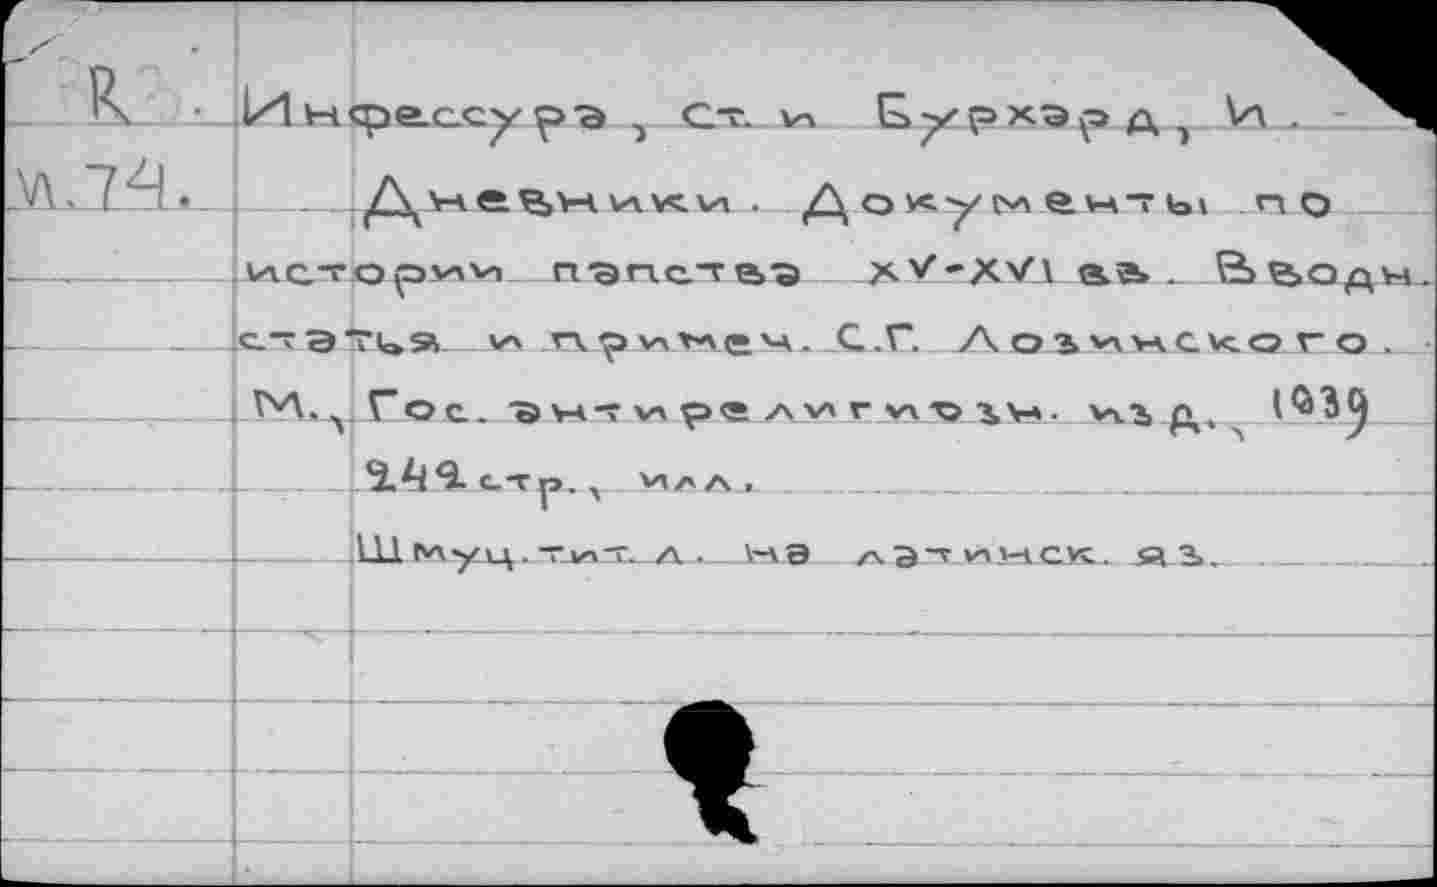 R
И.74.
Инфессура, Ст. и Бурхард, И.
Дневники. Документы по
истории папства XV-XVI вв. Вводн.
статья и примеч. С.Г. Лозинского.
М., Гос. антирелигиозн. изд., 1939
242 стр., илл.
Шмуц.тит. л. на латинск. яз.